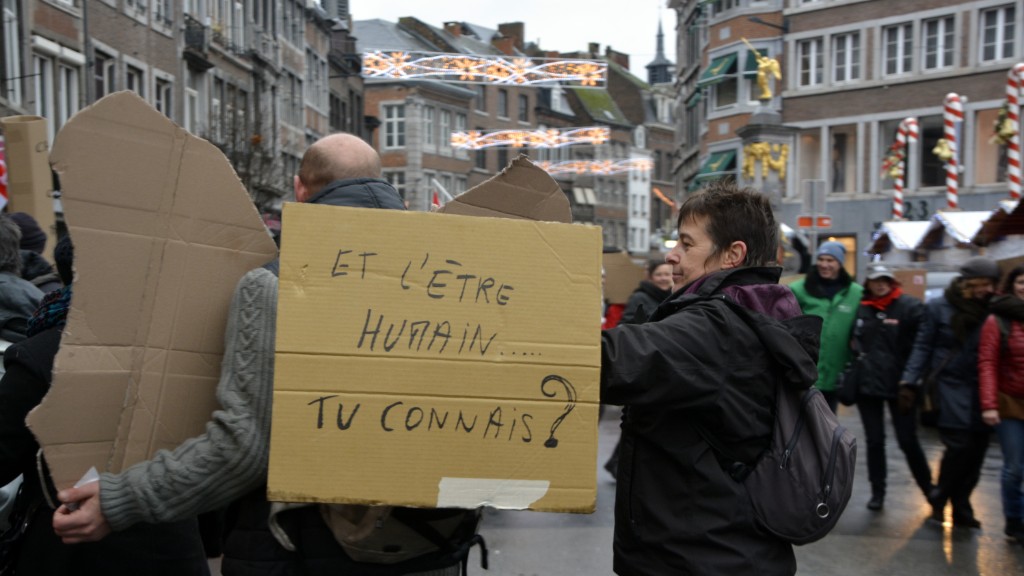 ET L'ÊTRE
HUMAIN.....
TU CONNAIS?